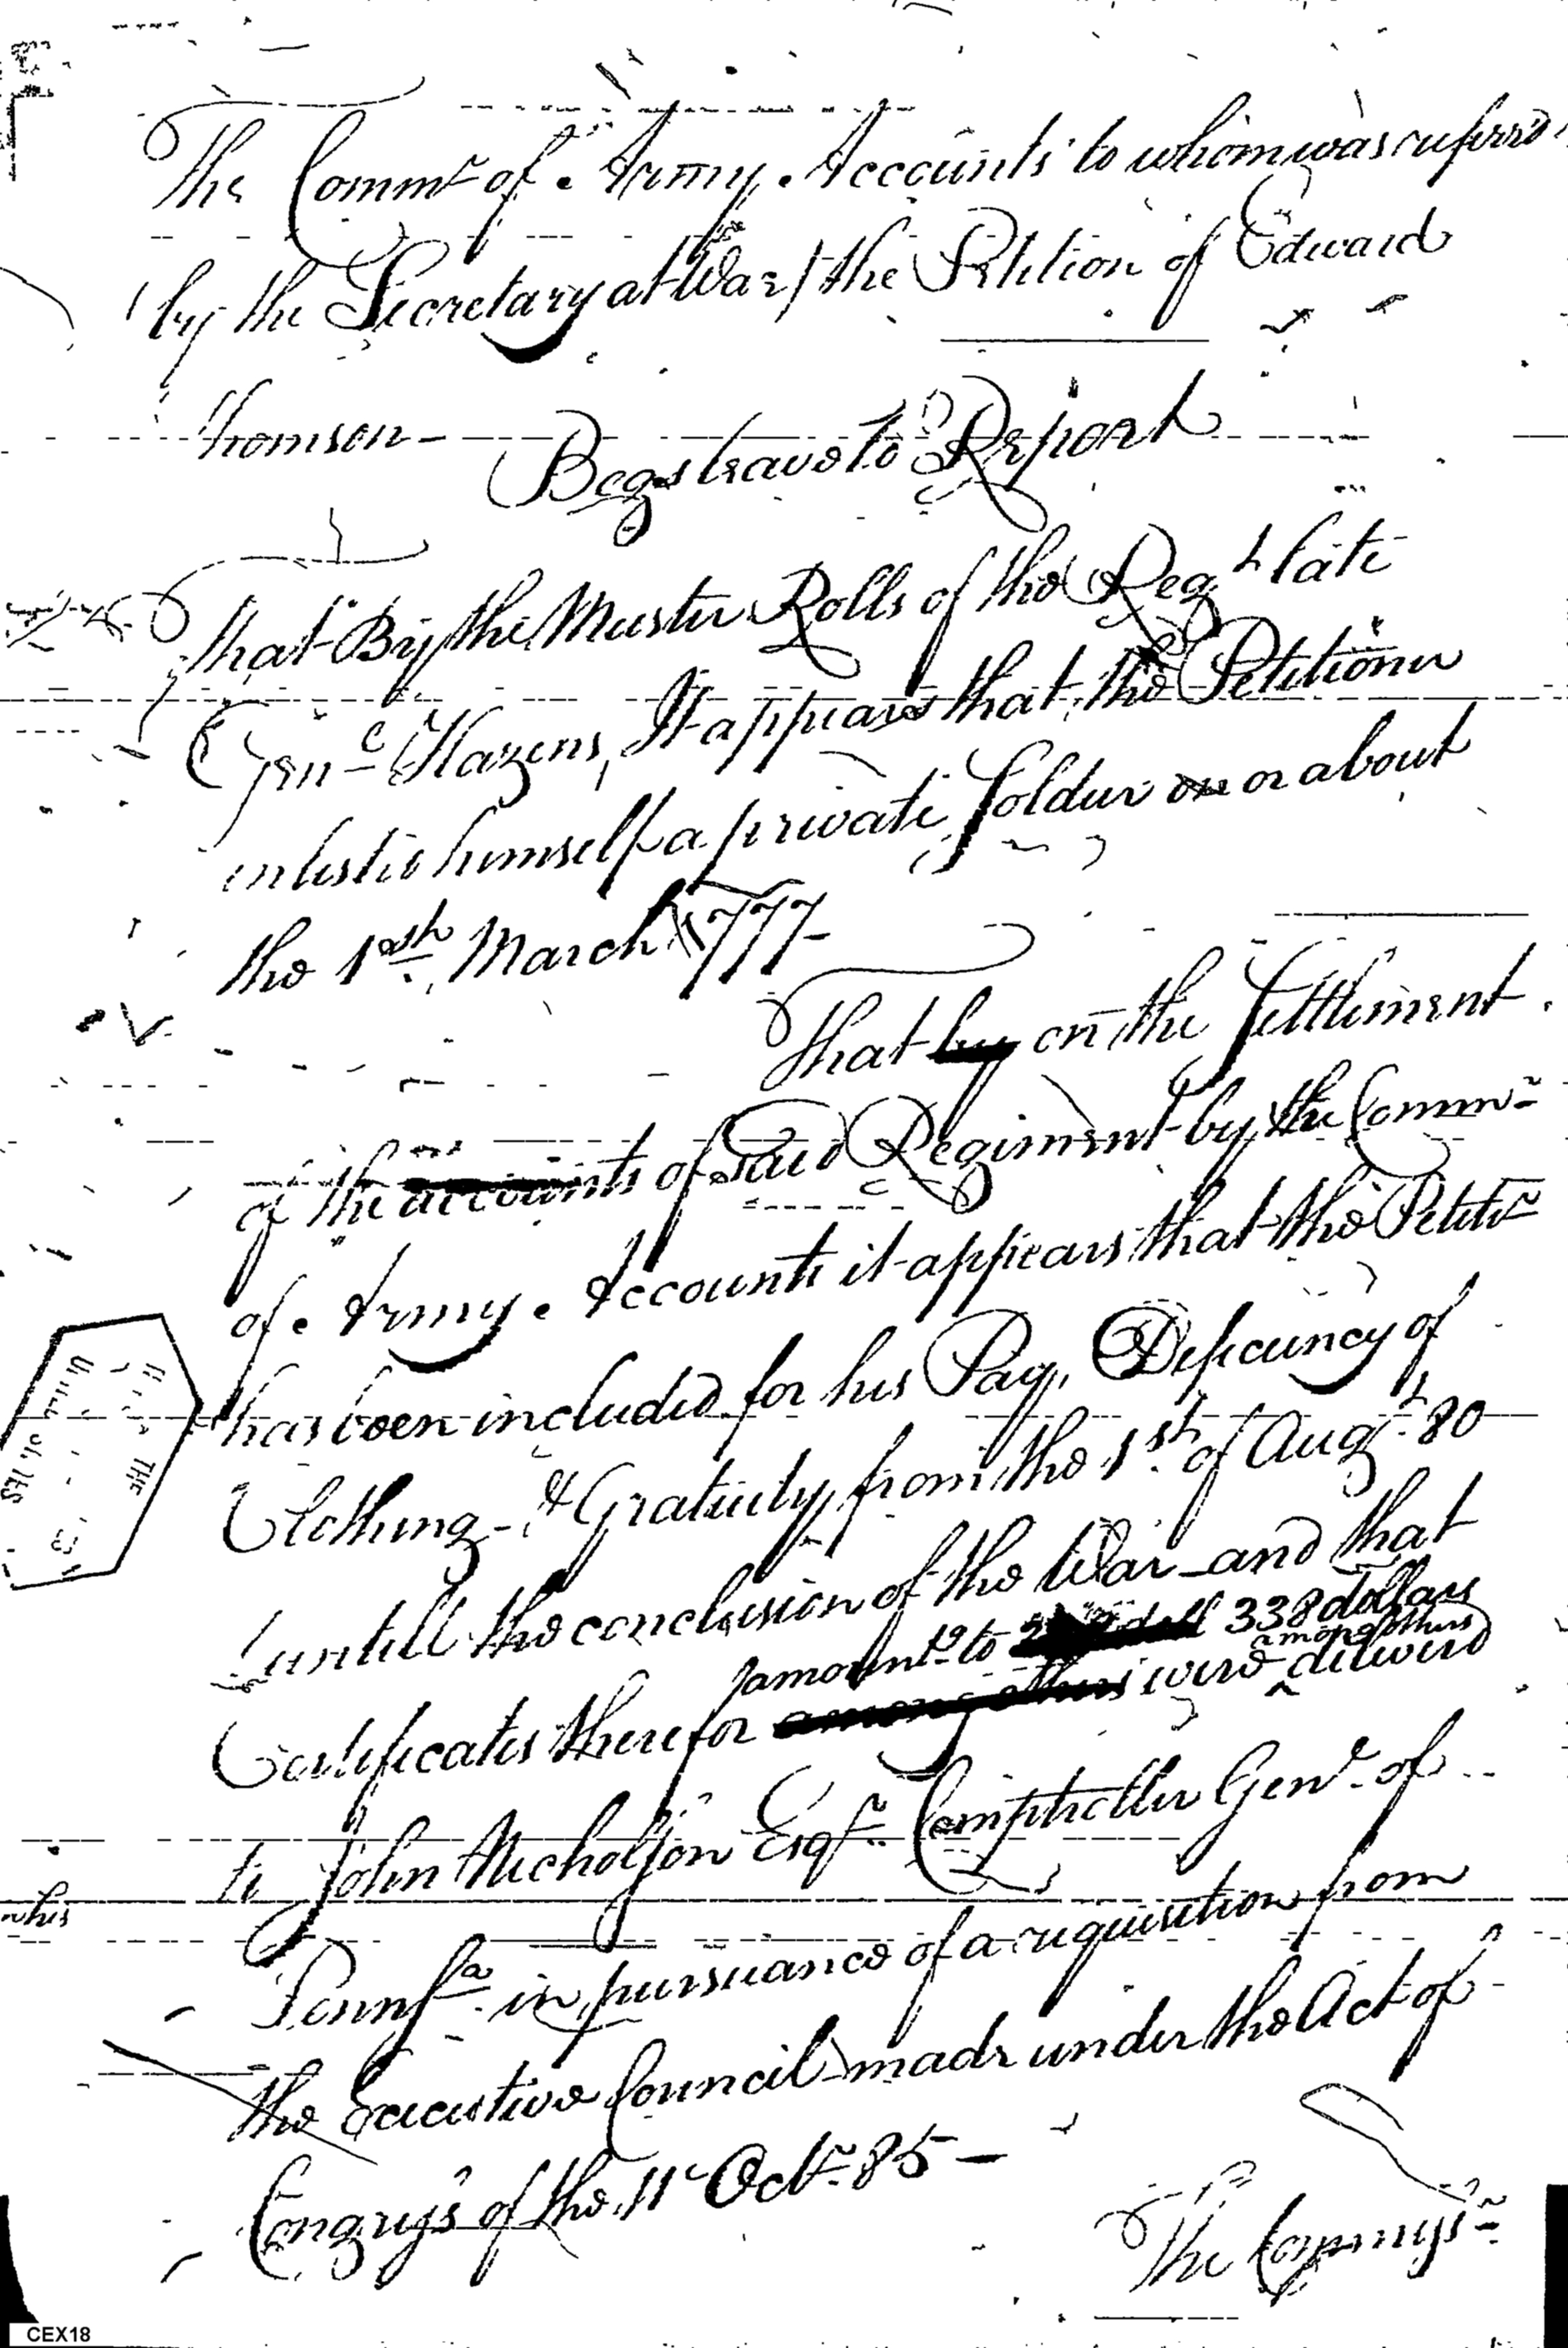 The Commr of Army Accounts to whom was referred
by the Secretary at War / the Petition of Edward
Thomson —
Begs leave to Report
That By the Muster Rolls of the Regt late
Genl Hazens, It appears that the Petitioner
inlisted himself a private Soldier on or about
the 1st March 1777 —
That by on the Settlement
of the accounts of said Regiment by the Commr
of Army Accounts it appears that the Petitr
has been included for his Pay, Deficiency of
Clothing & Gratuity from the 1st of Augt 80
untill the conclusion of the War and that
amountg to doll 338 dollars
among others
Certificates therefor among others were delivered
to John Nicholson Esqr Comptroller Genl of
Pennsa in pursuance of a requisition from
the Executive Council made under the Act of
Congress of the 11 Octr 85 —
The Commissr
this
THE
CEX18